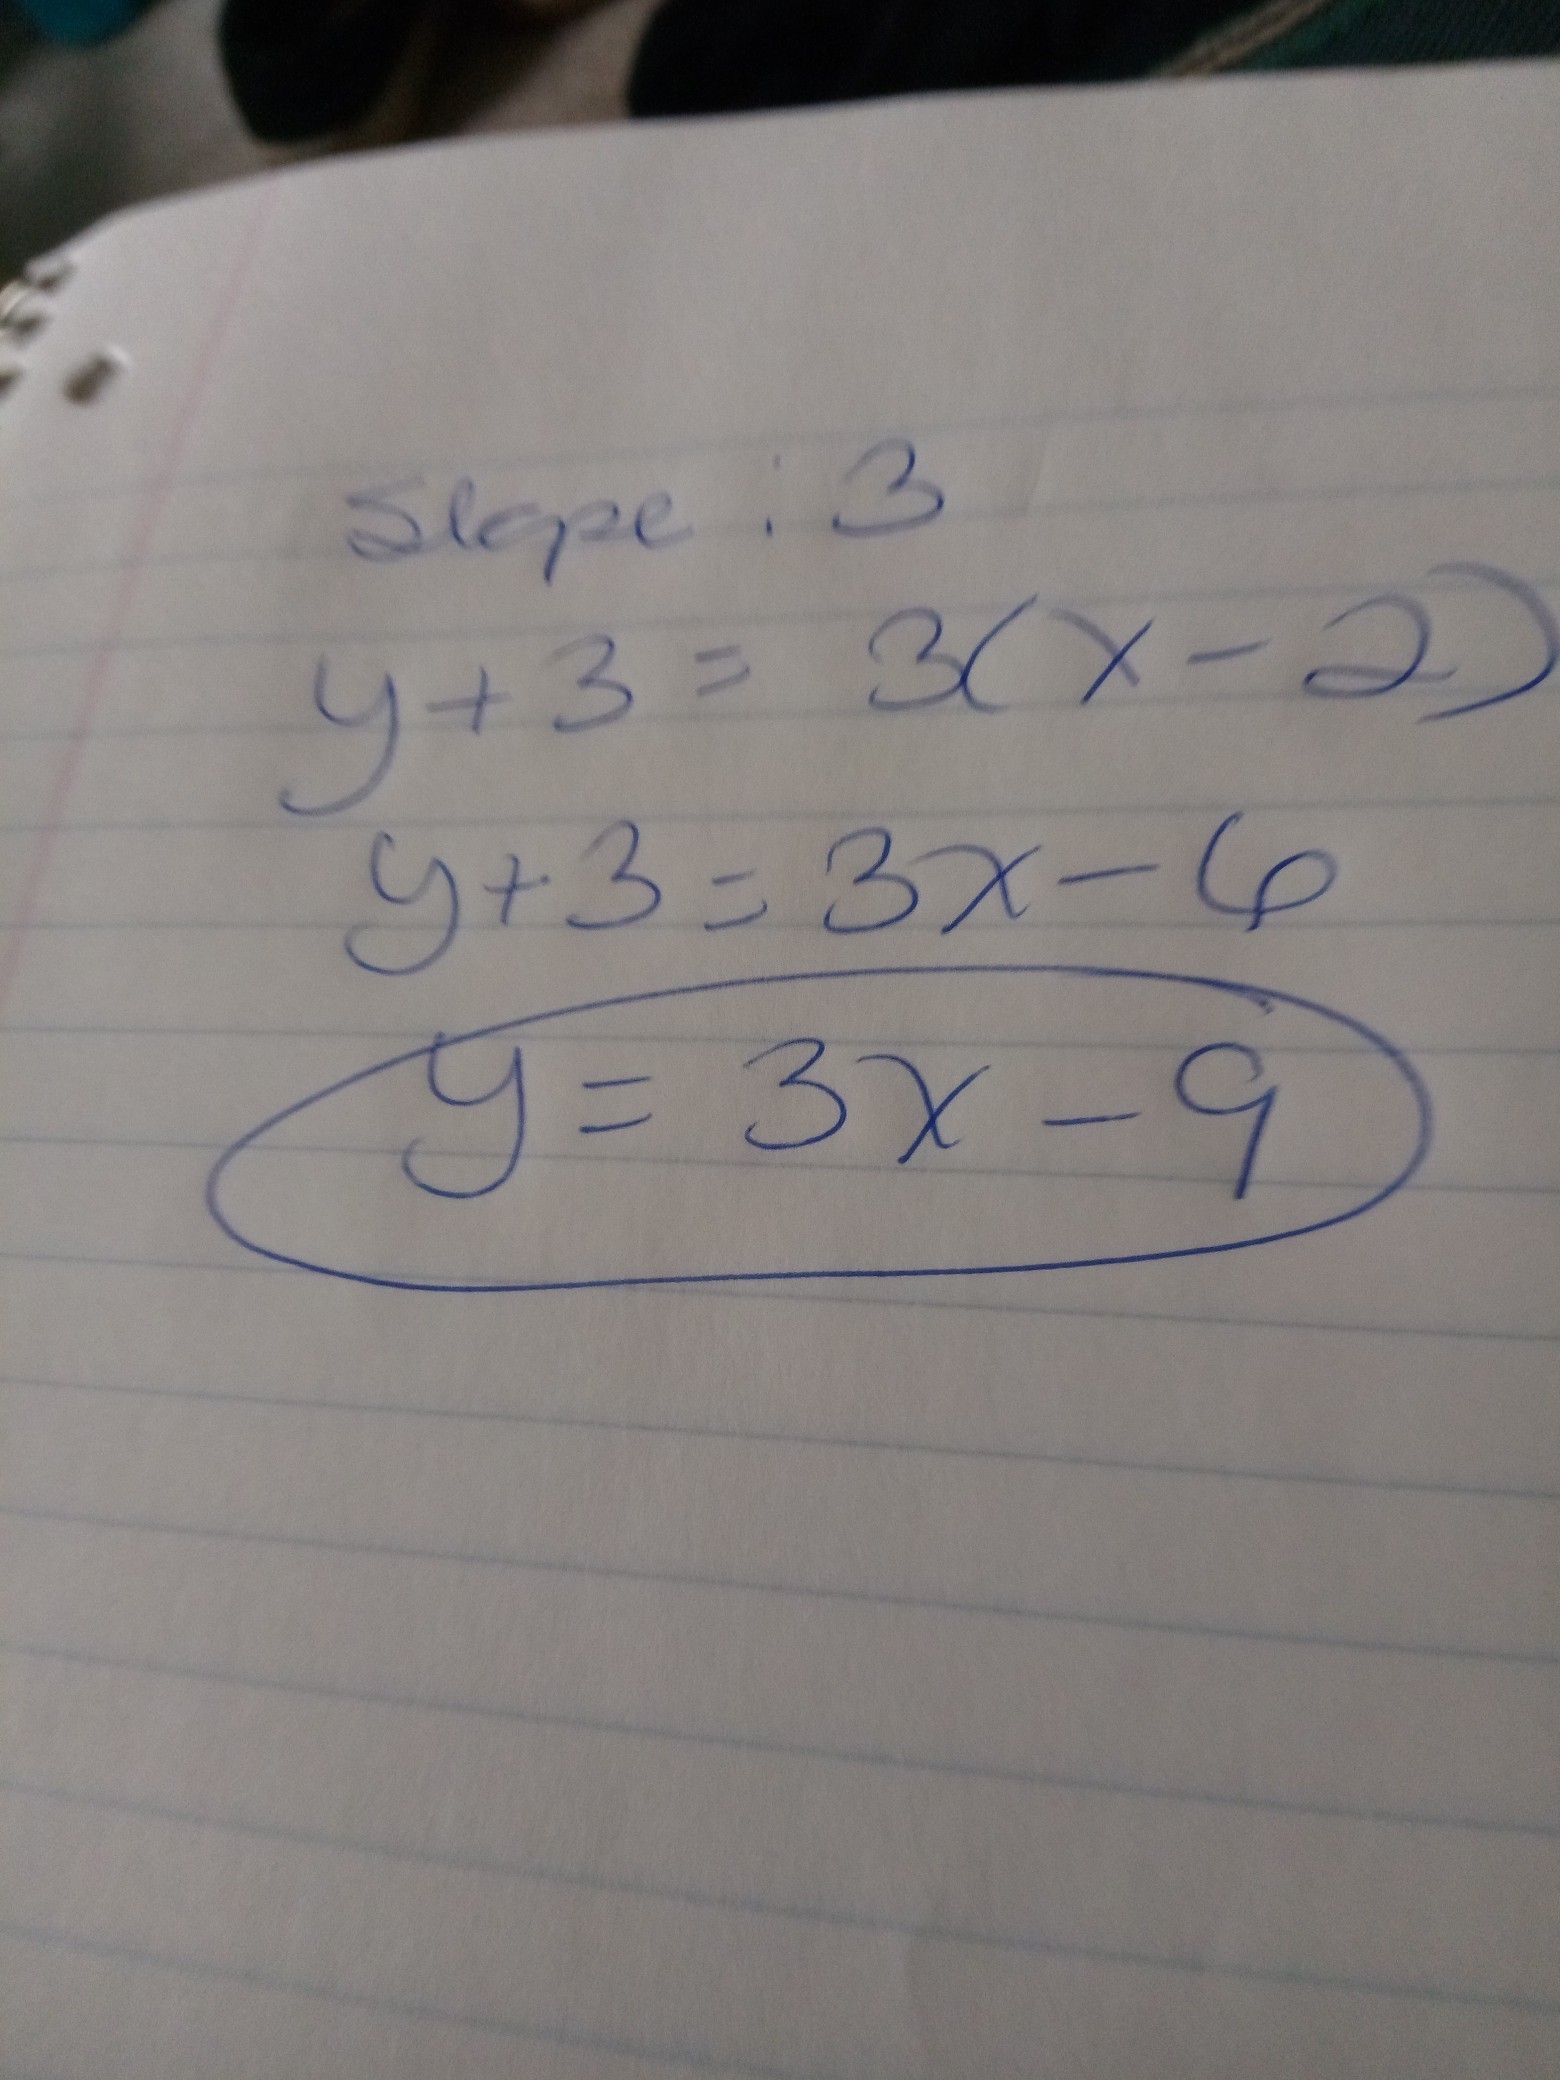 Slope : 3
y + 3 = 3(x - 2)
y + 3 = 3x - 6
y = 3x - 9